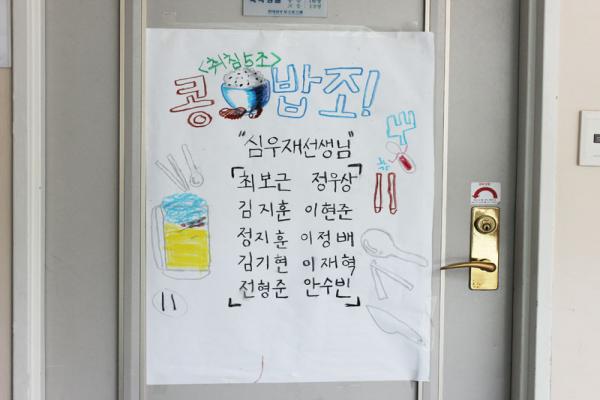 <취침5조>
콩밥조!
"심우재선생님"
최보근 정우상
김지훈 이현준
정지훈 이정배
김기현 이재혁
전형준 안수빈